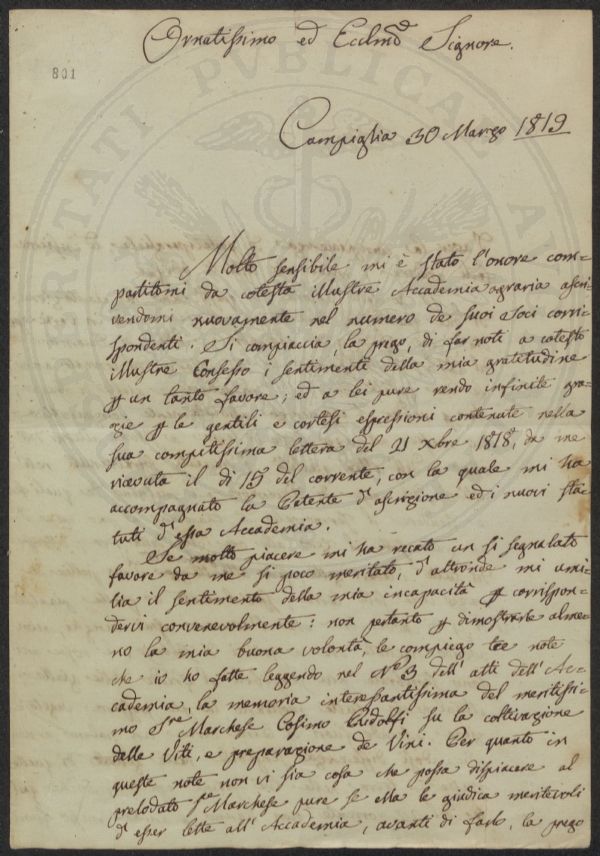 Ornatissimo ed Ecclmo Signore.
801
Campiglia 30 Marzo 1819
Molto sensibile mi è stato l'onore com=
partitomi da cotesta illustre Accademia agraria ascri=
vendomi nuovamente nel numero de suoi Soci corri=
spondenti. Si compiaccia, la prego, di far noti a cotesto
illustre Consesso i sentimenti della mia gratitudine
p un tanto favore; ed a lei pure rendo infinite gra=
zie p le gentili e cortesi espressioni contenute nella
sua compitissima lettera del 21 Xbre 1818, da me
ricevuta il di 15 del corrente, con la quale mi ha
accompagnato la Patente d'ascrizione ed i nuovi sta=
tuti d'essa Accademia.
Se molto piacere mi ha recato un si segnalato
favore da me si poco meritato, d'altronde mi umi=
lia il sentimento della mia incapacità p corrispon=
dervi convenevolmente: non pertanto p dimostrarle alme=
no la mia buona volontà, le compiego tre note
che io ho fatte leggendo nel N° 3 dell'atti dell'Ac=
cademia, la memoria interessantissima del meritissi=
mo Sre Marchese Cosimo Ridolfi su la coltivazione
delle Viti, e preparazione de Vini. Per quanto in
queste note non vi sia cosa che possa dispiacere al
prelodato Sr Marchese pure se ella le giudica meritevoli
d'esser lette all'Accademia, avanti di farlo, la prego